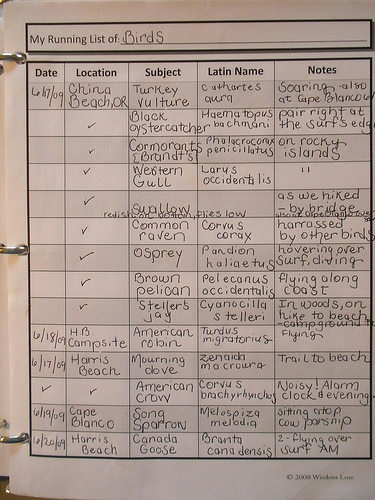 My Running List of: Birds
Date Location Subject Latin Name Notes
6/17/09 China Beach, OR Turkey vulture Cathartes aura Soaring - also at Cape Blanco 6/
✓ Black oystercatcher Haematopus bachmani pair right at the surf's edge
✓ Cormorants (Brandt's) Phalacrocorax penicillatus on rocky islands
✓ Western Gull Larus occidentalis "
✓ Swallow as we hiked - by bridge
redish on bottom, flies low
✓ Common raven Corvus corax harrassed by other birds
✓ Osprey Pandion haliaetus hovering over surf, diving
✓ Brown pelican Pelecanus occidentalis flying along coast
✓ Steller's jay Cyanocitta stelleri In woods, on hike to beach - campground to
6/18/09 H.B. campsite American robin Turdus migratorius Flying
6/17/09 Harris Beach Mourning dove zenaida macroura Trail to beach
✓ ✓ American crow Corvus brachyrhynchos Noisy! Alarm clock & evening
6/19/09 Cape Blanco Song Sparrow Melospiza melodia sitting atop cow parsnip
6/20/09 Harris Beach Canada Goose Branta canadensis 2 - flying over surf AM
© 2008 Wisdom Lore